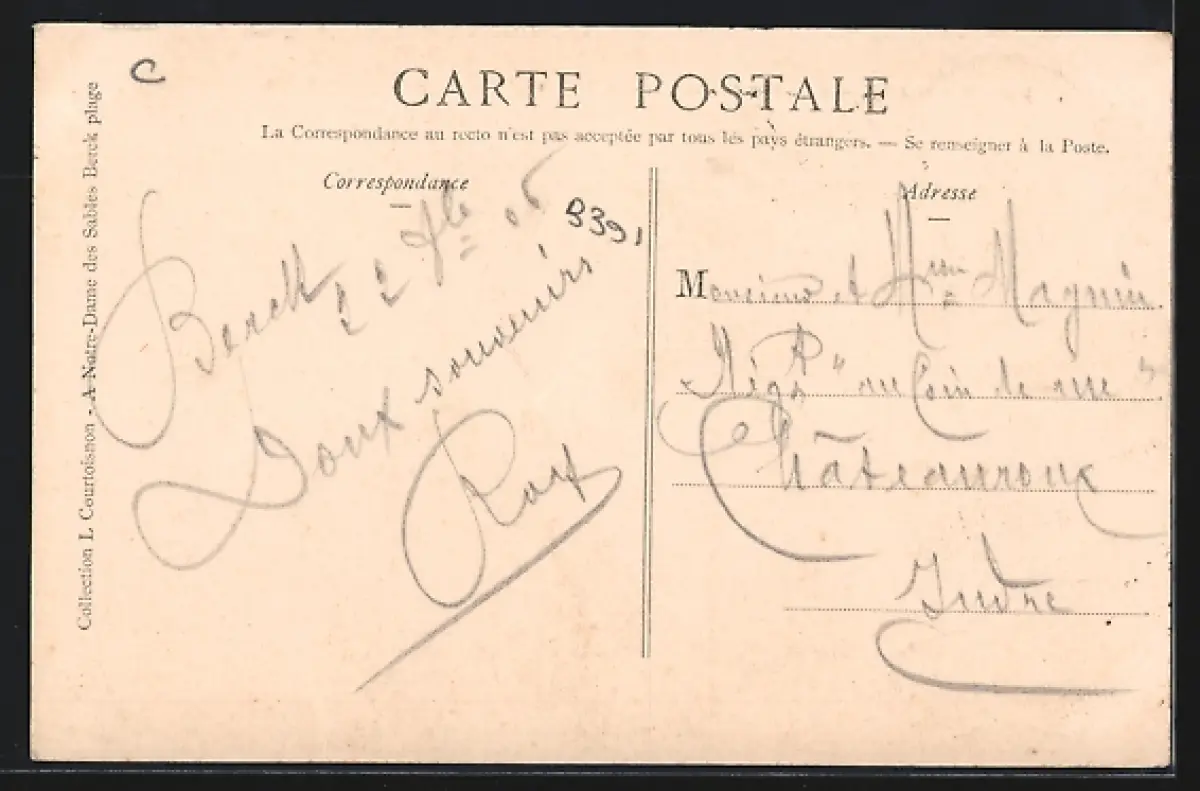 C
CARTE POSTALE
La Correspondance au recto n'est pas acceptée par tous lés pays étrangers. — Se renseigner à la Poste.
Correspondance
Berck 22 7bre 06
B391
Doux souvenirs
Adresse
Monsieur et Mme Magnin
Négts "au Coin de rue"
Châteauroux
Indre
Collection L Courtoisnon - A Notre-Dame des Sables Berck plage